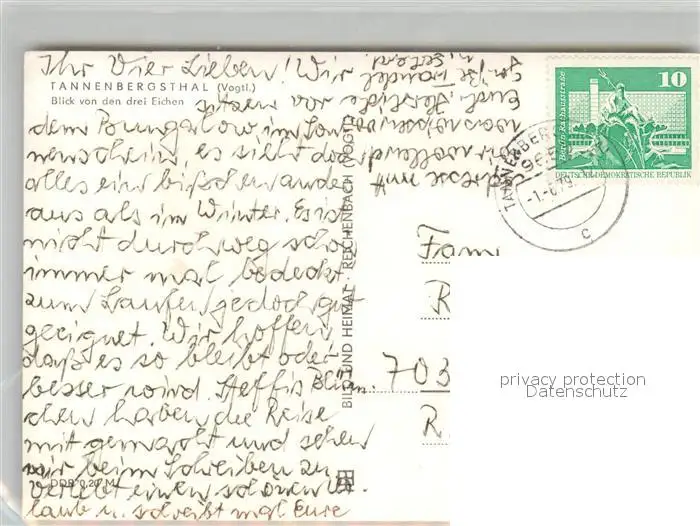 Ihr Vier Lieben! Wir
TANNENBERGSTHAL (Vogtl.)
Blick von den drei Eichen
sitzen vor
dem Bungalow im Son
nenschein, es sieht doch
alles ein bißchen anders
aus als im Winter. Es ist
nicht durchweg schön
immer mal bedeckt
zum Laufen jedoch gut
geeignet. Wir hoffen,
daß es so bleibt oder
besser wird. Steffis Blüm
chen haben die Reise
mit gemacht und sehen
mir beim Schreiben zu
DDR 0,20 M
Verlebt einen schönen Ur
laub u. schreibt mal Eure
Adresse mit
wir wollen
Euch
BILD UND HEIMAT · REICHENBACH (VOGTL)
10
Berlin, Rathausstraße
DEUTSCHE DEMOKRATISCHE REPUBLIK
TANNENBERG
-1.-6.79
c
Fam
R
703
R
privacy protection
Datenschutz